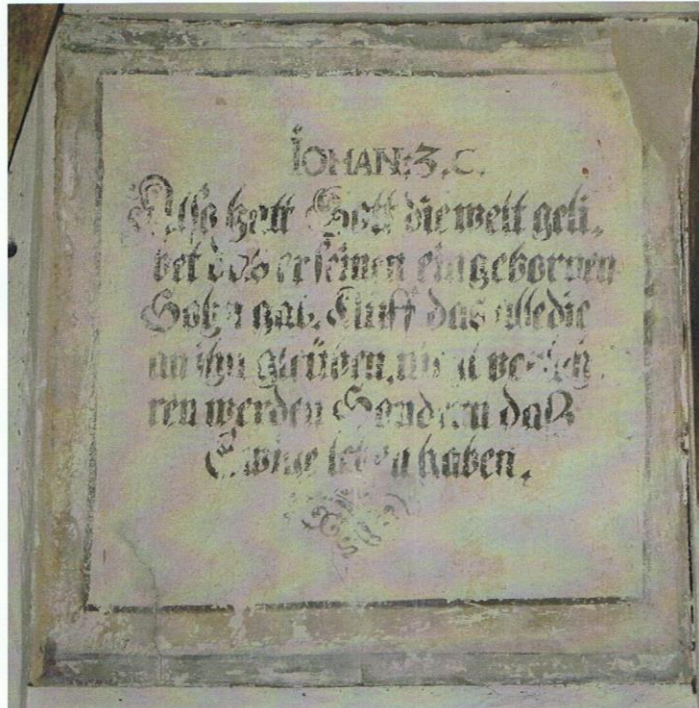 IOHAN: 3. C.
Also hett Gott die welt geli,
bet das er seinen eingebornen
Sohn gab, Auff das alle die
an ihn gleuben, nicht verloh
ren werden Sondern daß
Ewige leben haben.